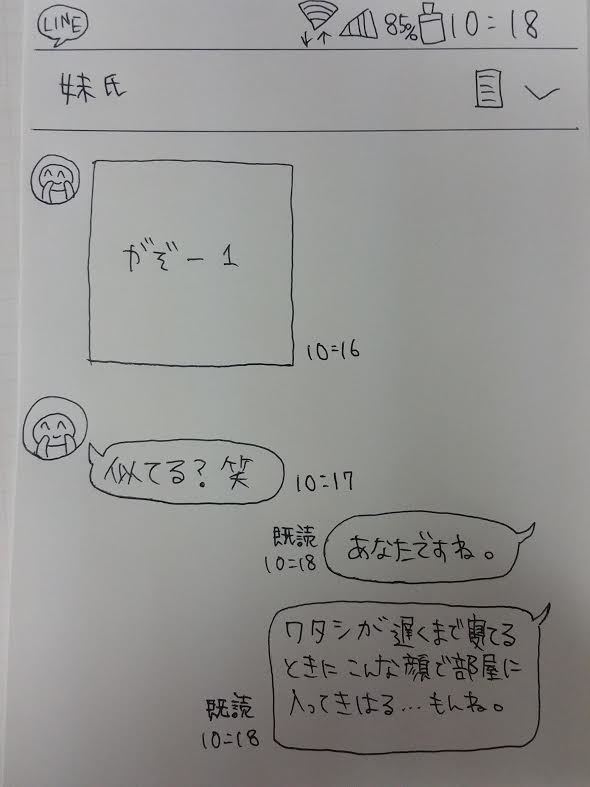 LINE
85% 10:18
妹氏
がぞー1
10:16
似てる?笑
10:17
あなたですね。
既読
10:18
ワタシが遅くまで寝てる
ときにこんな顔で部屋に
入ってきはる…もんね。
既読
10:18